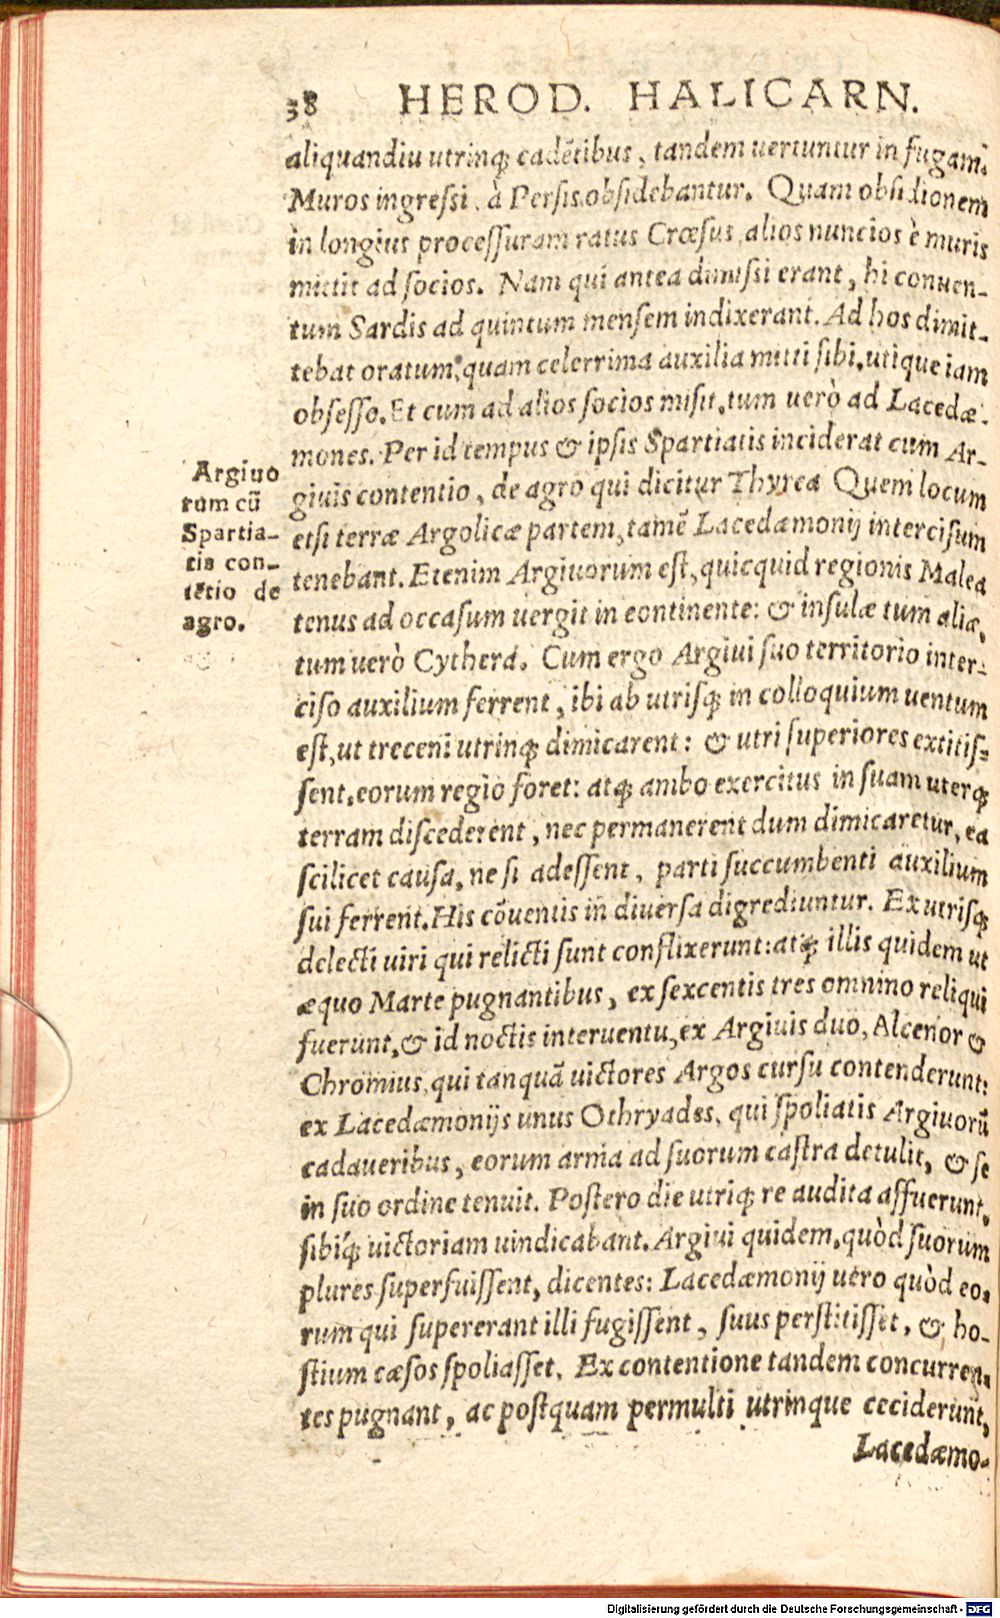 38 HEROD. HALICARN.
aliquandiu utrinq; cadẽtibus, tandem uertuntur in fugam.
Muros ingressi, à Persis obsidebantur. Quam obsidionem
in longius processuram ratus Crœsus, alios nuncios è muris
mittit ad socios. Nam qui antea dimissi erant, hi conuen-
tum Sardis ad quintum mensem indixerant. Ad hos dimit-
tebat oratum, quam celerrima auxilia mitti sibi, utique iam
obsesso. Et cum ad alios socios misit, tum uerò ad Lacedæ-
mones. Per id tempus & ipsis Spartiatis inciderat cum Ar-
giuis contentio, de agro qui dicitur Thyrea Quem locum
etsi terræ Argolicæ partem, tamẽ Lacedæmonij intercisum
tenebant. Etenim Argiuorum est, quicquid regionis Malea
tenus ad occasum uergit in continente: & insulæ tum aliæ,
tum uerò Cythera. Cum ergo Argiui suo territorio inter-
ciso auxilium ferrent, ibi ab utrisq; in colloquium uentum
est, ut treceni utrinq; dimicarent: & utri superiores extitis-
sent, eorum regio foret: atq; ambo exercitus in suam uterq;
terram discederent, nec permanerent dum dimicaretur, ea
scilicet causa, ne si adessent, parti succumbenti auxilium
sui ferrent. His cõuentis in diuersa digrediuntur. Ex utrisq;
delecti uiri qui relicti sunt conflixerunt: atq; illis quidem ut
æquo Marte pugnantibus, ex sexcentis tres omnino reliqui
fuerunt, & id noctis interuentu, ex Argiuis duo, Alcenor &
Chromius, qui tanquã uictores Argos cursu contenderunt:
ex Lacedæmonijs unus Othryades, qui spoliatis Argiuorũ
cadaueribus, eorum arma ad suorum castra detulit, & se
in suo ordine tenuit. Postero die utriq; re audita affuerunt,
sibiq́; uictoriam uindicabant. Argiui quidem, quòd suorum
plures superfuissent, dicentes: Lacedæmonij uero quòd eo-
rum qui supererant illi fugissent, suus perstitisset, & ho-
stium cæsos spoliasset. Ex contentione tandem concurren-
tes pugnant, ac postquam permulti utrinque ceciderunt,
Lacedæmo-
Argiuo
rum cũ
Spartia-
tis con-
tẽtio de
agro.
Digitalisierung gefördert durch die Deutsche Forschungsgemeinschaft - DFG